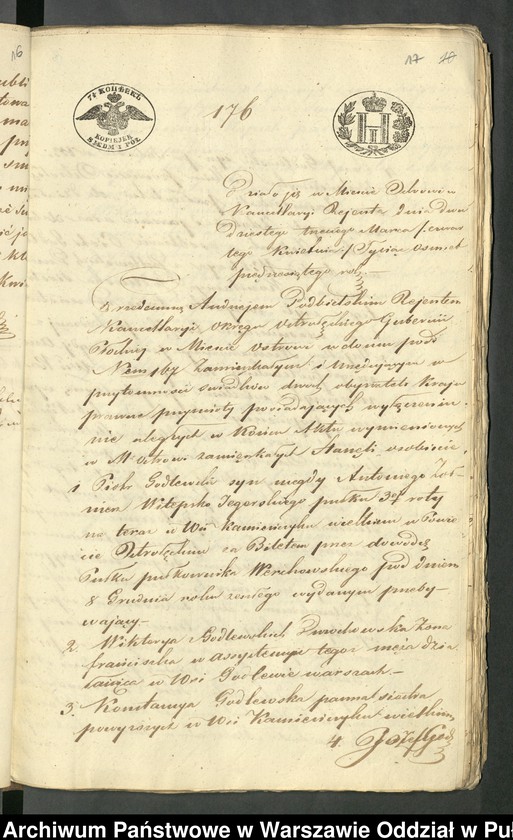 16
17 18
7½ КОПѢЕКЪ
KOPIEJEK
176
H
II
Działo się w Mieście Ostrowiu
Kancellaryi Rejenta dnia dwu
dziestego trzeciego Marca /: czwar
tego Kwietnia :/ Tysiąc ośmset
pięćdziesiątego rok.
Przedemną Andrzejem Podbielskim Rejentem
Kancellaryi okręgu Ostrołęckiego Gubernii
Płockiej w Mieście Ostrowi w domu pod
Nem 167 zamieszkałym i urzędującym w
przytomności świadków dwóch obywateli Kraju
prawne przymioty posiadających wyłączeniom
nie uległych w końcu Aktu wymienionych
w M. Ostrowi zamieszkałych Stanęli osobiście.
1 Piotr Godlewski syn niegdy Antoniego Żoł-
nierz Witepsko Jegerskiego pułku 3ej roty
na teraz w Wsi Kamieńczyku wielkim w Powie
cie Ostrołęckim za Biletem przez dowódcę
Pułku pułkownika Werchowskiego pod dniem
8 Grudnia roku zeszłego wydanym przeby-
wający.-
2. Wiktorya z Godlewskich Dmochowska Żona
Franciszka w assystencyi tegoż męża dzie
dzica w Wsi Godlewie warszach.-
3. Konstancya Godlewska panna siostra
powyższych w Wsi Kamieńczyku wielkim
4. Józef God
Archiwum Państwowe w Warszawie Oddział w Pu